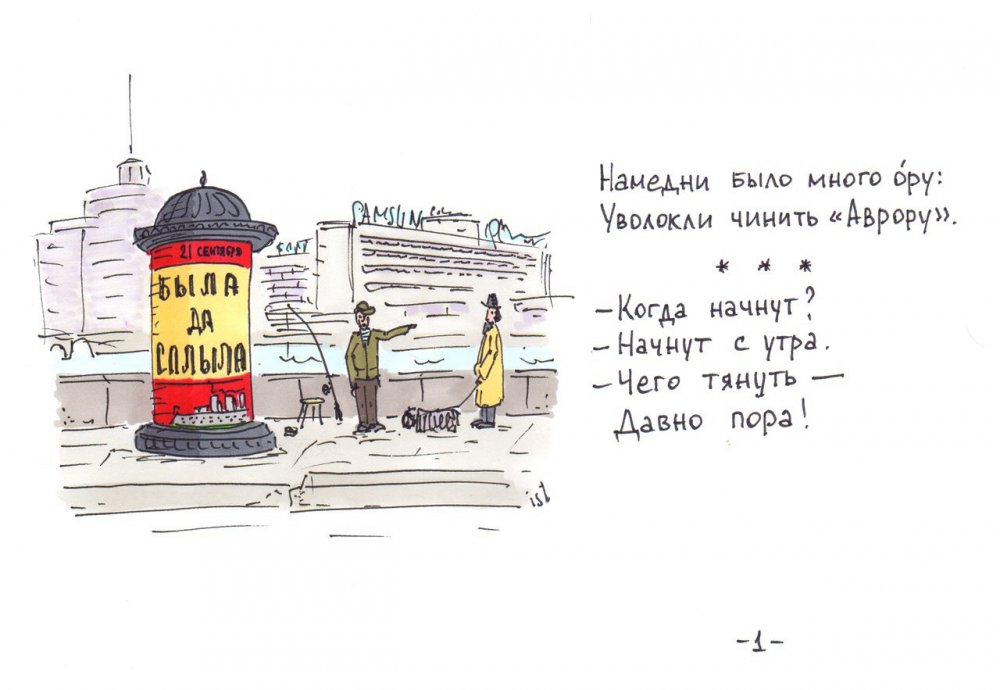 21 СЕНТЯБРЯ
БЫЛА
ДА
СПЛЫЛА
SAMSUN
Намедни было много о́ру:
Уволокли чинить «Аврору».
* * *
– Когда начнут?
– Начнут с утра.
– Чего тянуть —
Давно пора!
ist
-1-